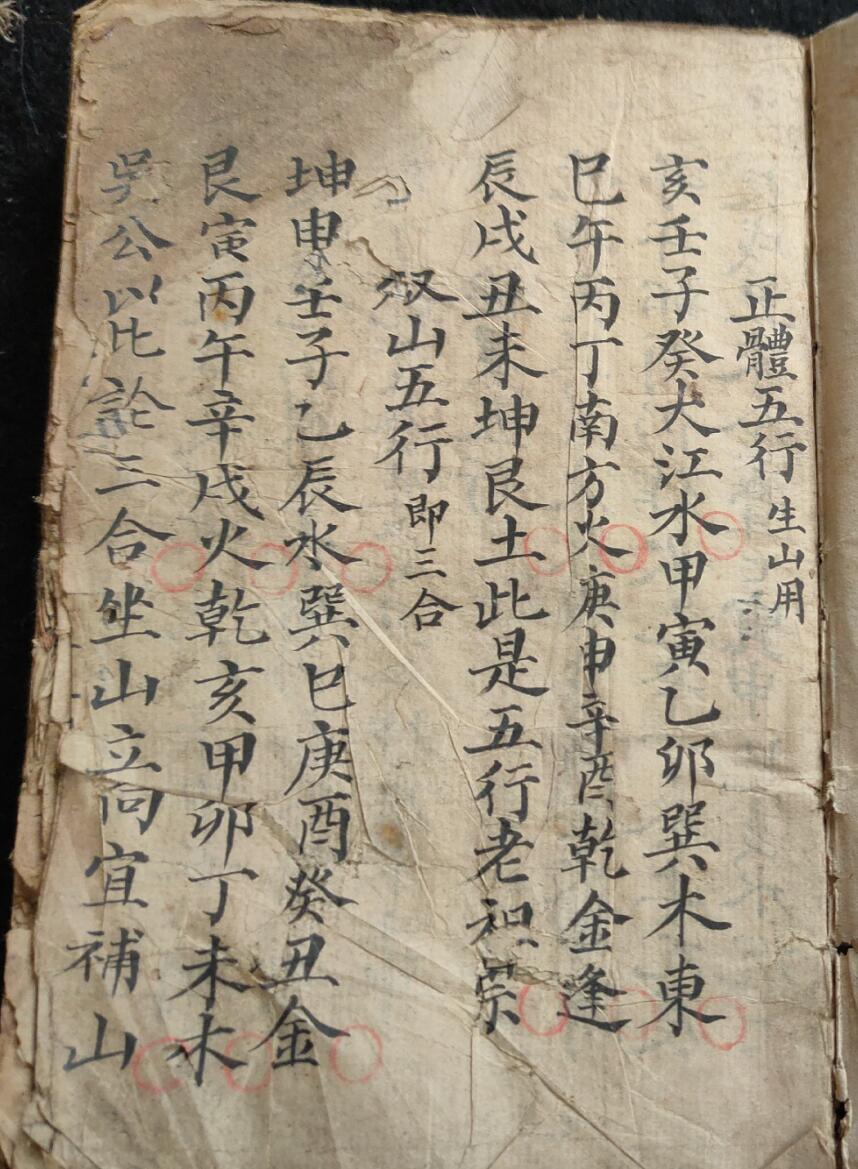 正體五行 生山用
亥壬子癸大江水甲寅乙卯巽木東
巳午丙丁南方火庚申辛酉乾金逢
辰戌丑未坤艮土此是五行老祖宗
双山五行 即三合
坤申壬子乙辰水巽巳庚酉癸丑金
艮寅丙午辛戌火乾亥甲卯丁未木
吳公以此論三合坐山立向宜補山